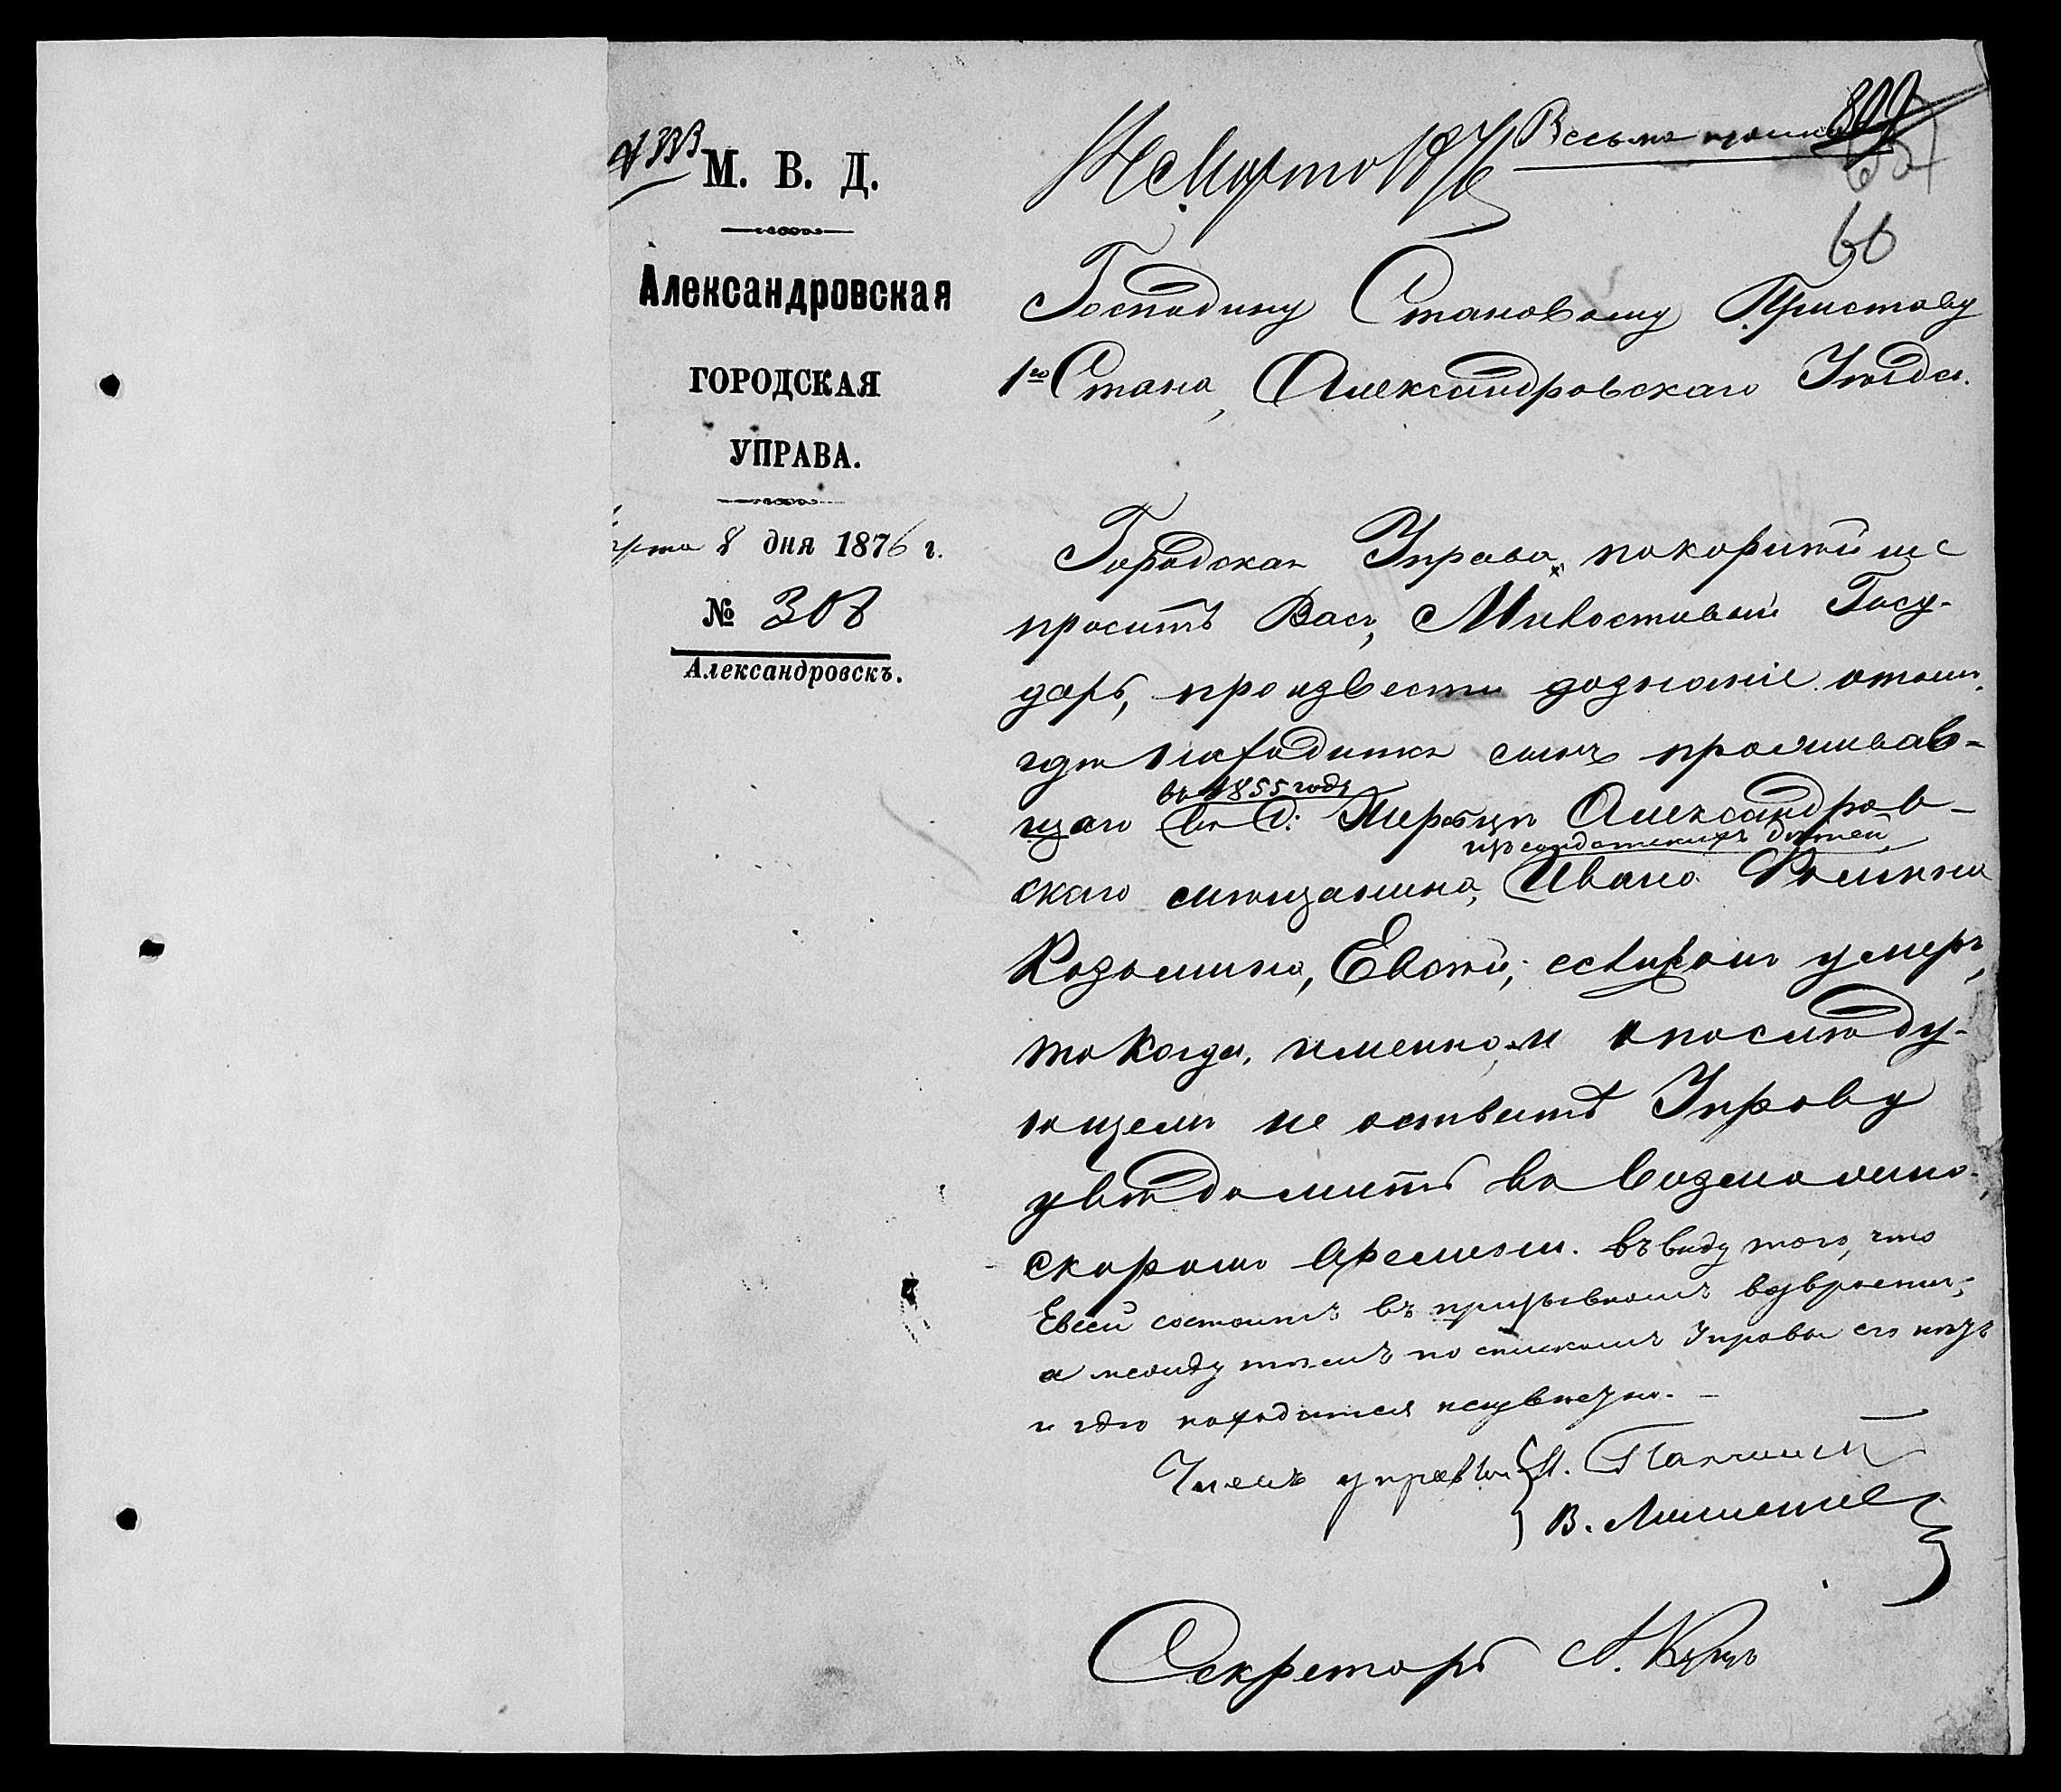 М. В. Д.
Александровская
ГОРОДСКАЯ
УПРАВА.
8 дня 1876 г.
№ 308
Александровскъ.
Марта 1876
Весьма
60
Господину Становому Приставу
1го Стана, Александровскаго Уѣзда.
Городская Управа покорнѣйше
проситъ Васъ, Милостивый Госу-
дарь, произвести дознаніе о томъ,
гдѣ находится сынъ проживав-
въ 1855 году
щаго въ С. Александров-
изъ солдатскихъ дѣтей
скаго мѣщанина, Ивана
Козьмина, Евсѣй; если онъ умеръ,
то когда именно, и о послѣду-
ющемъ не оставить Управу
увѣдомить въ возможно
скоромъ времени. въ виду того, что
Евсей состоитъ въ призывномъ возврастѣ,
а между тѣмъ по спискамъ Управы его нѣтъ
и гдѣ находится неизвѣстно. –
Членъ управы
В.
Секретарь А.